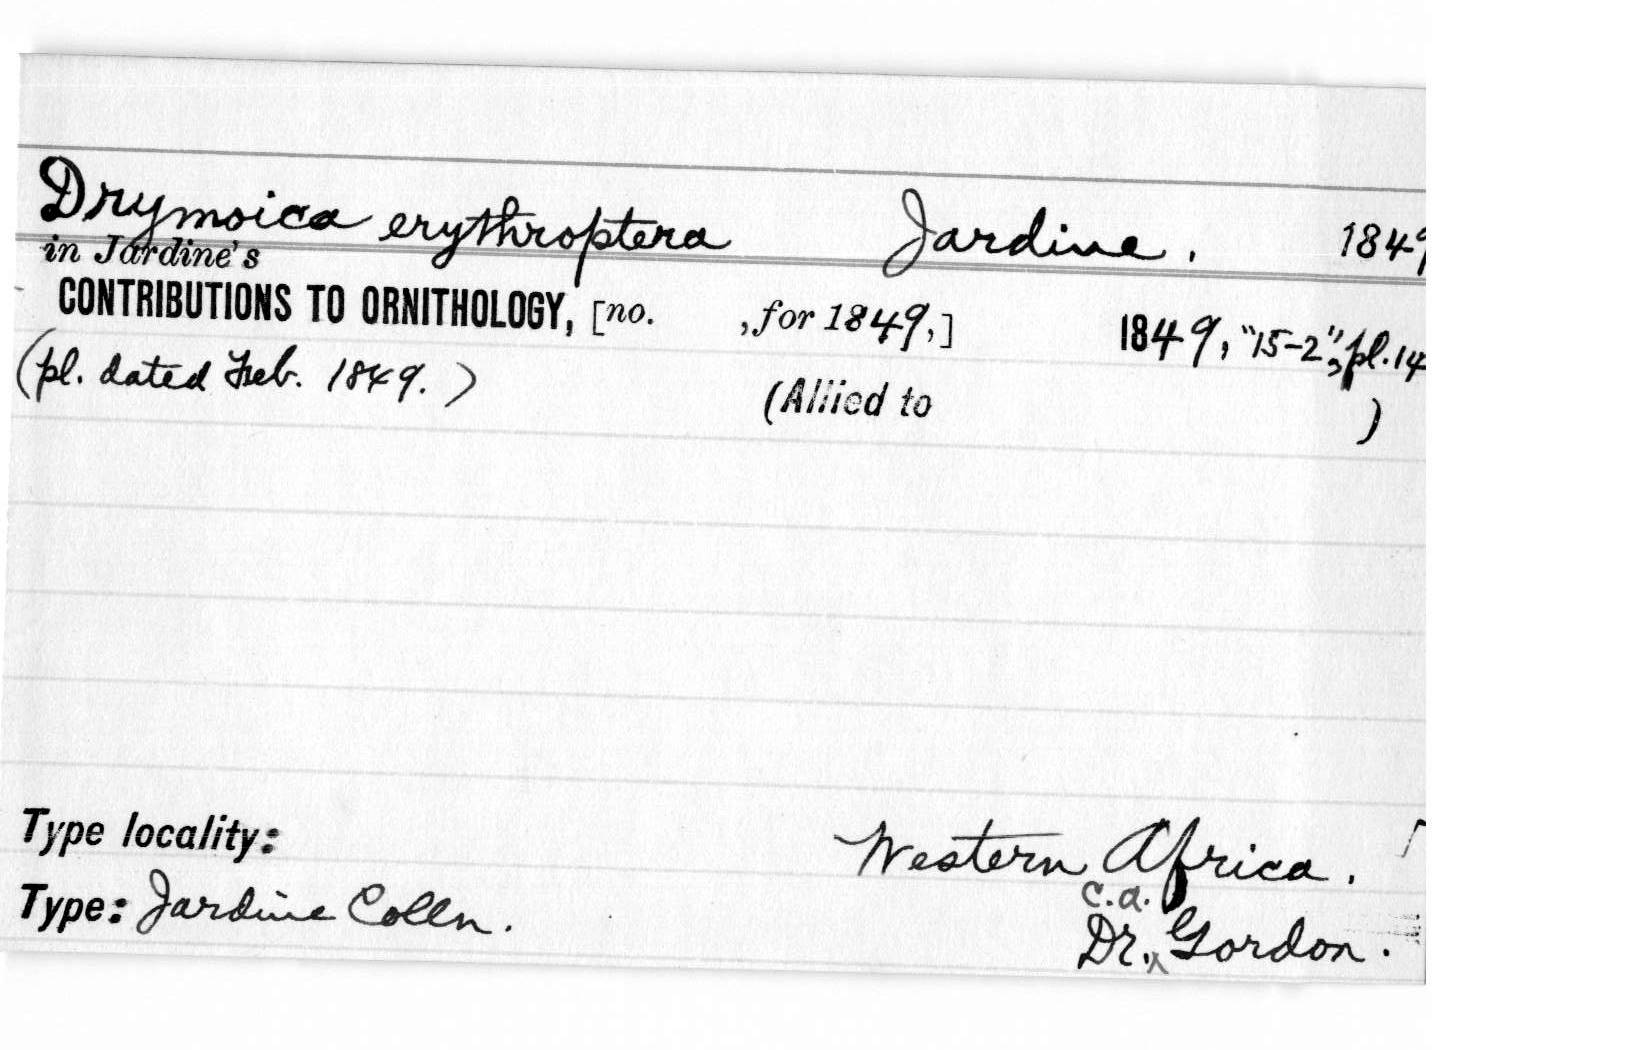 Drymoica erythroptera Jardine. 1849
in Jardine's
CONTRIBUTIONS TO ORNITHOLOGY, [no. , for 1849,] 1849, "15-2", pl. 14
(pl. dated Feb. 1849.) (Allied to )
Type locality: Western Africa.
c.a.
Type: Jardine Colln. Dr. ^ Gordon.